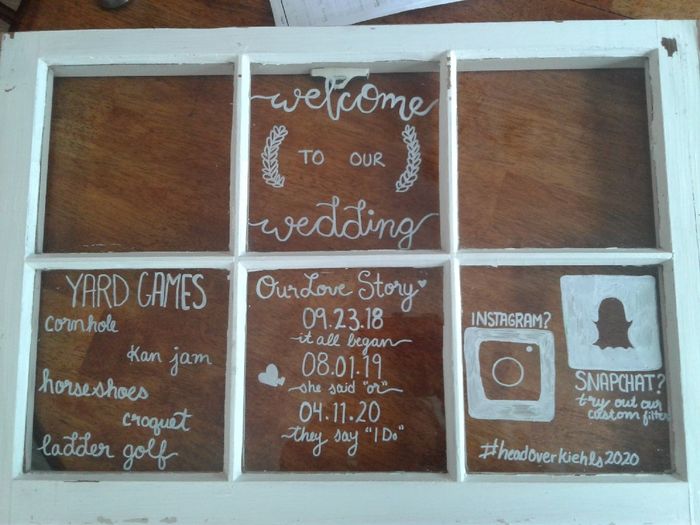 welcome
TO OUR
wedding
YARD GAMES
cornhole
Kan jam
horseshoes
croquet
ladder golf
Our Love Story
09.23.18
it all began
08.01.19
she said "or"
04.11.20
they say "I Do"
INSTAGRAM?
SNAPCHAT?
try out our
custom filter
#headoverkiehls2020